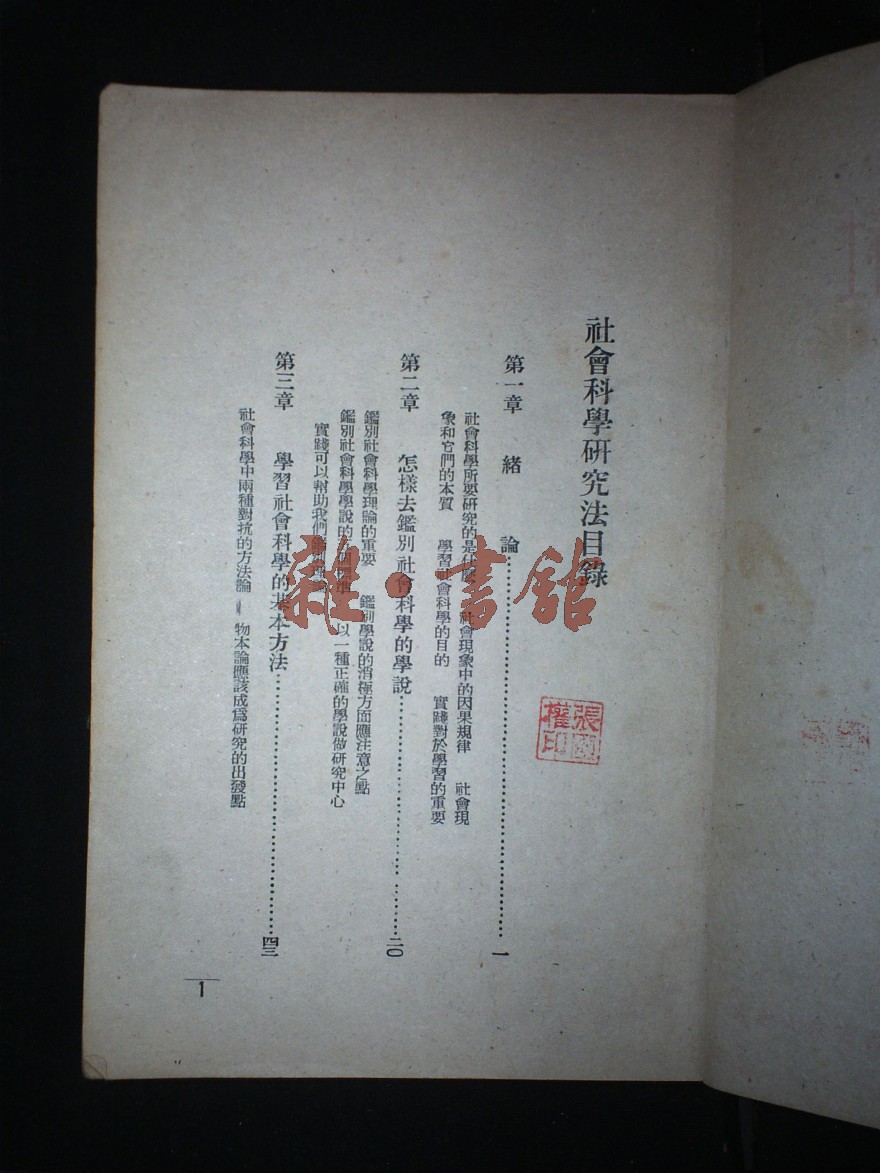 社會科學硏究法目錄
第一章 緖論 一
社會科學所要硏究的是什麽 社會現象中的因果規律 社會現
象和它們的本質 學習社會科學的目的 實踐對於學習的重要
第二章 怎樣去鑑別社會科學的學說 二〇
鑑別社會科學理論的重要 鑑別學說的消極方面應注意之點
鑑別社會科學學說的 以一種正確的學說做硏究中心
實踐可以幫助我們
第三章 學習社會科學的基本方法 四三
社會科學中兩種對抗的方法論 物本論應該成爲硏究的出發點
1
雜·書館
張
權印